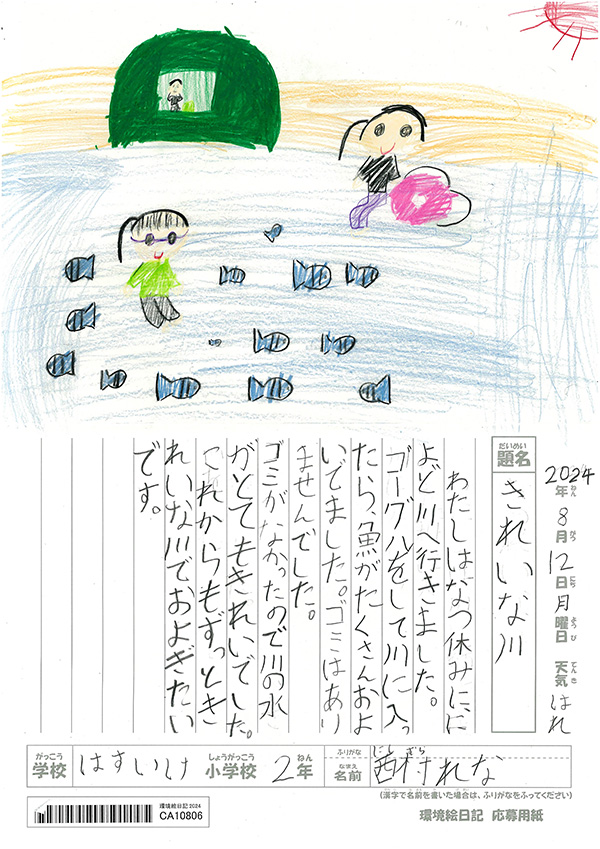 2024年 8月 12日 月曜日 天気 はれ
ねん がつ にち ようび てんき
だいめい
題名
きれいな川
わたしはなつ休みに、に
よど川へ行きました。
ゴーグルをして川に入っ
たら、魚がたくさんおよ
いでました。ゴミはあり
ませんでした。
ゴミがなかったので川の水
がとてもきれいでした。
これからもずっとき
れいな川でおよぎたい
です。
がっこう しょうがっこう ねん ふりがな
学校 はすいけ 小学校 2年
なまえ
名前 西村れな
(漢字で名前を書いた場合は、ふりがなをふってください)
環境絵日記 2024
CA10806
環境絵日記 応募用紙